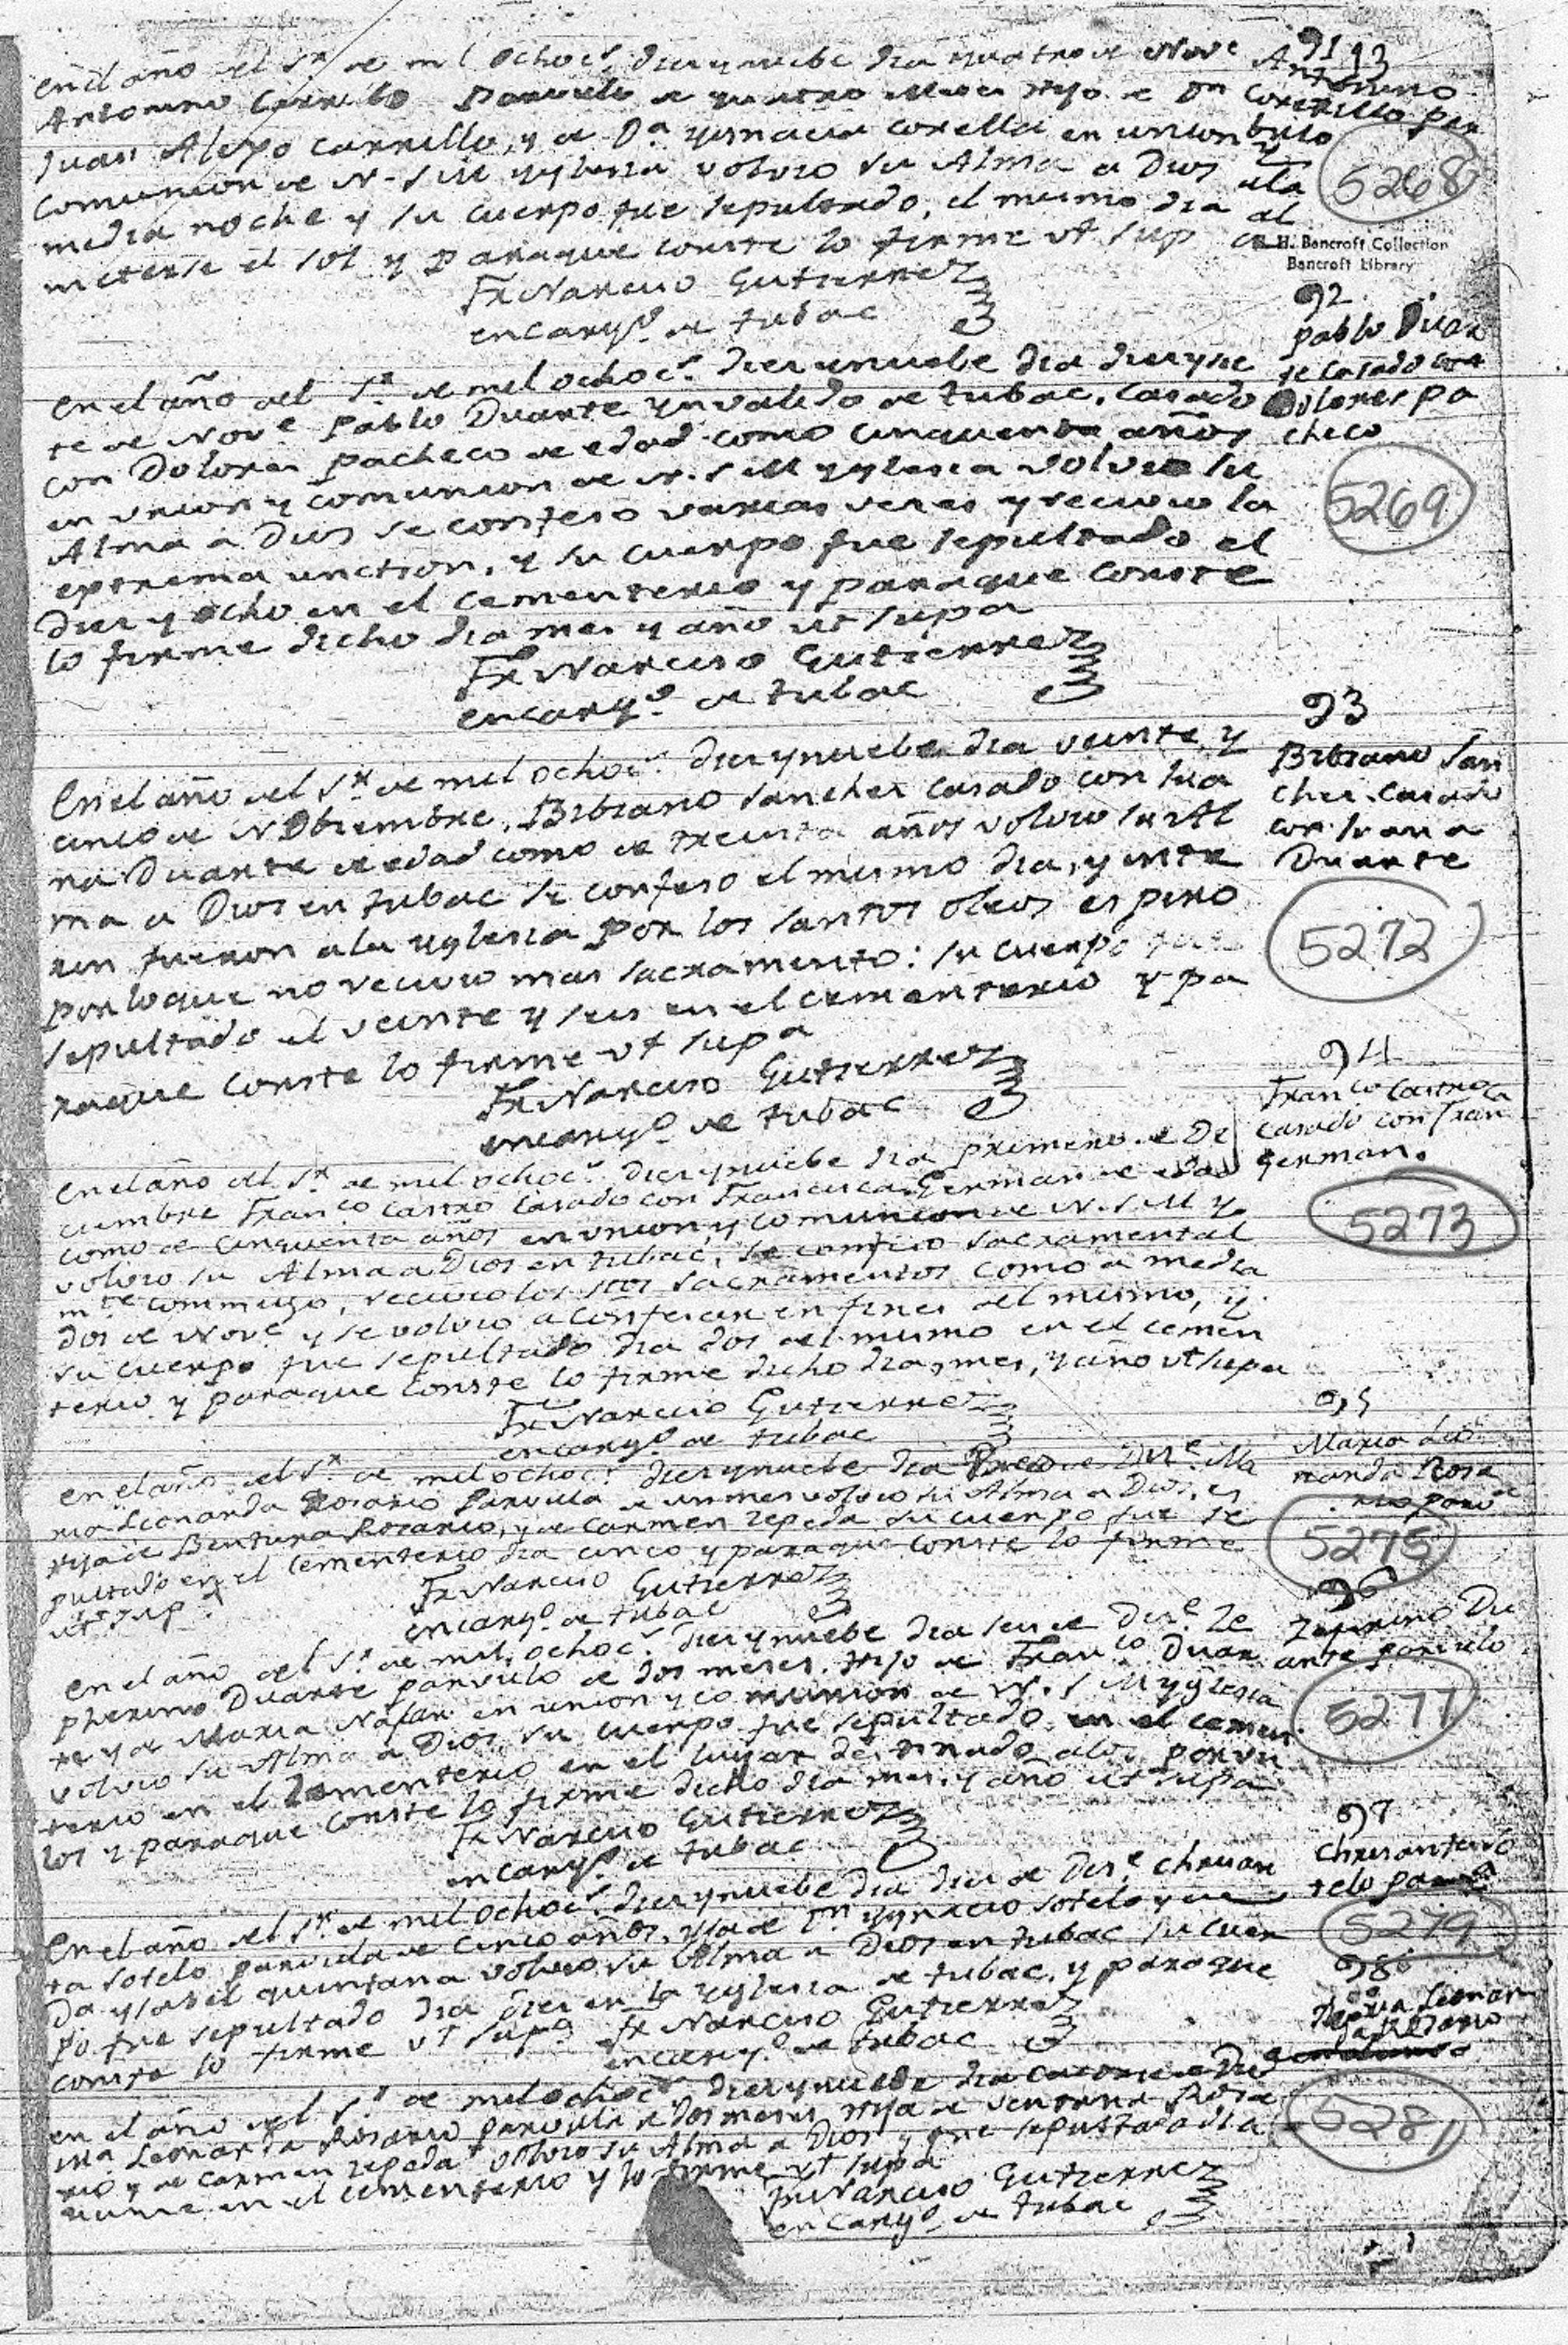 En el año del Sr de mil ochocs diez y nuebe dia quatro de Nove
Antonino Carrillo Parvulo de quatro Meses hijo de Dn
Juan Alepo Carrillo, y de Da Ygnacia Corella en union y
comunion de N. S M Yglesia volvio su Alma a Dios a la
media noche y su cuerpo fue sepultado, el mismo dia al
meterse el sol y paraque conste lo firme ut sup
Fr Narciso Gutierrez
encargo de tubac
91 93
Antonino
Carrillo par
bulo
5268
H. Bancroft Collection
Bancroft Library
En el año del Sr de mil ochocs diez y nuebe dia diez y sie
te de Nove Pablo Duarte Ynvalido de tubac, casado
con Dolores Pacheco de edad como cinquenta años
en union y comunion de N. S M Yglesia volvio su
Alma a Dios se confeso varias veces y recivio la
extrema unction, y su cuerpo fue sepultado el
diez y ocho en el cementerio y paraque conste
lo firme dicho dia mes y año ut supa
Fr Narciso Gutierrez
encargo de tubac
92
Pablo Duar
te casado con
Dolores Pa
checo
5269
En el año del Sr de mil ochocs diez y nuebe dia veinte y
cinco de Nobiembre, Bibiano Sanches casado con Jua
na Duarte de edad como de treinta años volvio su Al
ma a Dios en tubac se confeso el mismo dia, y inte
rin fueron a la yglesia por los santos oleos espiro
por lo que no recivio mas sacramento: su cuerpo fue
sepultado el veinte y seis en el cementerio y pa
raque conste lo firme ut supa
Fr Narciso Gutierrez
encargo de tubac
93
Bibiano San
ches casado
con Juana
Duarte
5272
En el año del Sr de mil ochocs diez y nuebe dia primero de De
ciembre Franco Castro casado con Francisca German de edad
como de cinquenta años en union, y comunion de N. S M Y
volvio su Alma a Dios en tubac, se confeso sacramental
mte commigo, recivio los stos sacramentos como a media
dos de Nove y se volvio a confesar en fines del mismo, y
su cuerpo fue sepultado dia dos del mismo en el cemen
terio y paraque conste lo firme dicho dia, mes, y año ut supa
Fr Narciso Gutierrez
encargo de tubac
94
Franco Castro
casado con Fran
ca
German.
5273
En el año del Sr de mil ochocs diez y nuebe dia de Dize Ma
ria Leonarda Rosario Parvula de un mes volvio su Alma a Dios, es
hija de Bentura Rosario, y de Carmen Zepeda su cuerpo fue se
pultado en el cementerio dia cinco y paraque conste lo firme
ut supa
Fr Narciso Gutierrez
encargo de tubac
95
Maria Leo
narda Rosa
rio parva
5275
En el año del Sr de mil ochocs diez y nuebe dia seis de Dize Ze
pherino Duarte parvulo de dos meses, hijo de Franco Duar
te y de Maria Nafar en union y comunion de N. S M Yglesia
volvio su Alma a Dios su cuerpo fue sepultado en el cemen
terio en el Zementerio en el lugar destinado a los parvu
los y paraque conste lo firme dicho dia mes, y año ut supa
Fr Narciso Gutierrez
encargo de tubac
96
Zepirino Du
arte parvulo
5277
En el año del Sr de mil ochocs diez y nuebe dia diez de Dize Chrisan
ta Sotelo parvula de cinco años, yja de Dn Ygnacio Sotelo y de
Da Ysabel Quintana volvio su Alma a Dios en tubac su cuer
po fue sepultado dia diez en la Yglesia de tubac, y paraque
conste lo firme ut supa
Fr Narciso Gutierrez
encargo de tubac
97
Chrisanta So
telo parva
5279
En el año del Sr de mil ochocs diez y nuebe dia catorce de Dize
Leonarda Rosario parvula de dos meses hija de Ventura Rosa
rio y de Carmen Zepeda volvio su Alma a Dios y fue sepultada dia
en el cementerio y lo firme ut supa
Fr Narciso Gutierrez
encargo de tubac
98
Leonar
da Rosario
5281